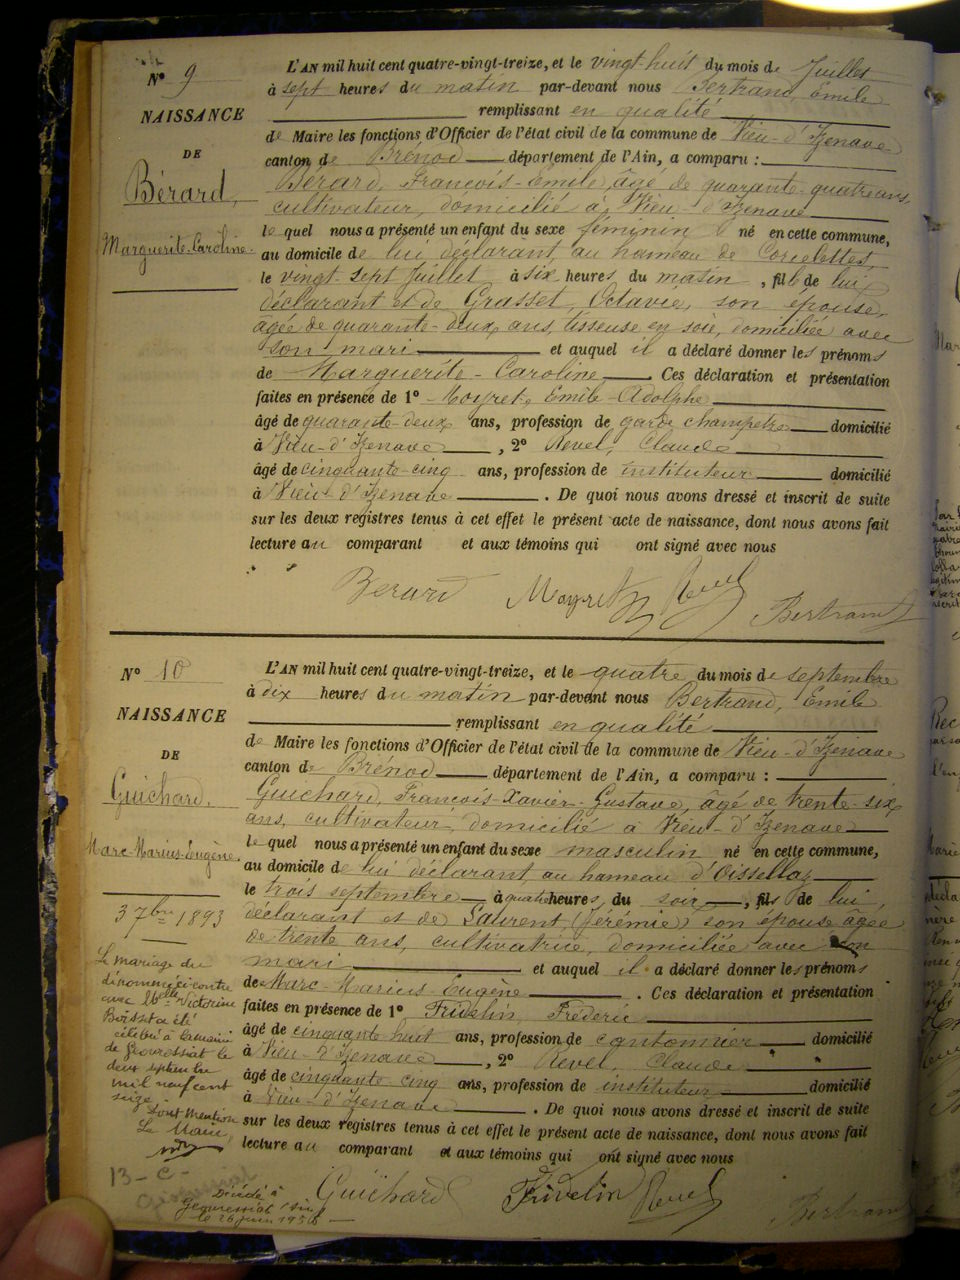 N° 9
NAISSANCE
DE
Bérard,
Marguerite-Caroline.
L'AN mil huit cent quatre-vingt-treize, et le vingt-huit du mois de Juillet
à sept heures du matin par-devant nous Bertrand, Émile
remplissant en qualité
de Maire les fonctions d'Officier de l'état civil de la commune de Vieu-d'Izenave
canton de Brénod département de l'Ain, a comparu :
Bérard, François-Émile, âgé de quarante-quatre ans,
cultivateur, domicilié à Vieu-d'Izenave
le quel nous a présenté un enfant du sexe féminin né en cette commune,
au domicile de lui déclarant, au hameau de Corcelettes,
le vingt-sept Juillet à six heures du matin, fille de lui
déclarant et de Grasset, Octavie, son épouse,
âgée de quarante-deux ans, tisseuse en soie, domiciliée avec
son mari et auquel il a déclaré donner les prénoms
de Marguerite-Caroline. Ces déclaration et présentation
faites en présence de 1° Moyret, Émile-Adolphe
âgé de quarante-deux ans, profession de garde champetre domicilié
à Vieu-d'Izenave, 2° Revel, Claude
âgé de cinquante-cinq ans, profession de instituteur domicilié
à Vieu-d'Izenave. De quoi nous avons dressé et inscrit de suite
sur les deux registres tenus à cet effet le présent acte de naissance, dont nous avons fait
lecture au comparant et aux témoins qui ont signé avec nous
Berard Moyret Revel Bertrand
N° 10
NAISSANCE
DE
Guichard,
Marc-Marius-Eugène.
3 7bre 1893
L'AN mil huit cent quatre-vingt-treize, et le quatre du mois de septembre
à dix heures du matin par-devant nous Bertrand, Émile
remplissant en qualité
de Maire les fonctions d'Officier de l'état civil de la commune de Vieu-d'Izenave
canton de Brénod département de l'Ain, a comparu :
Guichard, François-Xavier-Gustave, âgé de trente-six
ans, cultivateur, domicilié à Vieu-d'Izenave
le quel nous a présenté un enfant du sexe masculin né en cette commune,
au domicile de lui déclarant, au hameau d'Oissellaz
le trois septembre à quatre heures du soir, fils de lui
déclarant et de Laurent (Jérémie) son épouse âgée
de trente ans, cultivatrice, domiciliée avec son
mari et auquel il a déclaré donner les prénoms
de Marc-Marius-Eugène. Ces déclaration et présentation
faites en présence de 1° Fridelin Frédéric
âgé de cinquante huit ans, profession de cantonnier domicilié
à Vieu-d'Izenave, 2° Revel, Claude
âgé de cinquante cinq ans, profession de instituteur domicilié
à Vieu-d'Izenave. De quoi nous avons dressé et inscrit de suite
sur les deux registres tenus à cet effet le présent acte de naissance, dont nous avons fait
lecture au comparant et aux témoins qui ont signé avec nous
Guichard Fridelin Revel Bertrand
Le mariage du
dénommé ci-contre
avec Melle Victorine
Boisset a été
célébré à la mairie
de Geovressiat le
deux septembre
mil neuf cent
seize.
Dont Mention
Le Maire,
13-C-
Décédé à
Geovressiat
le 26 juin